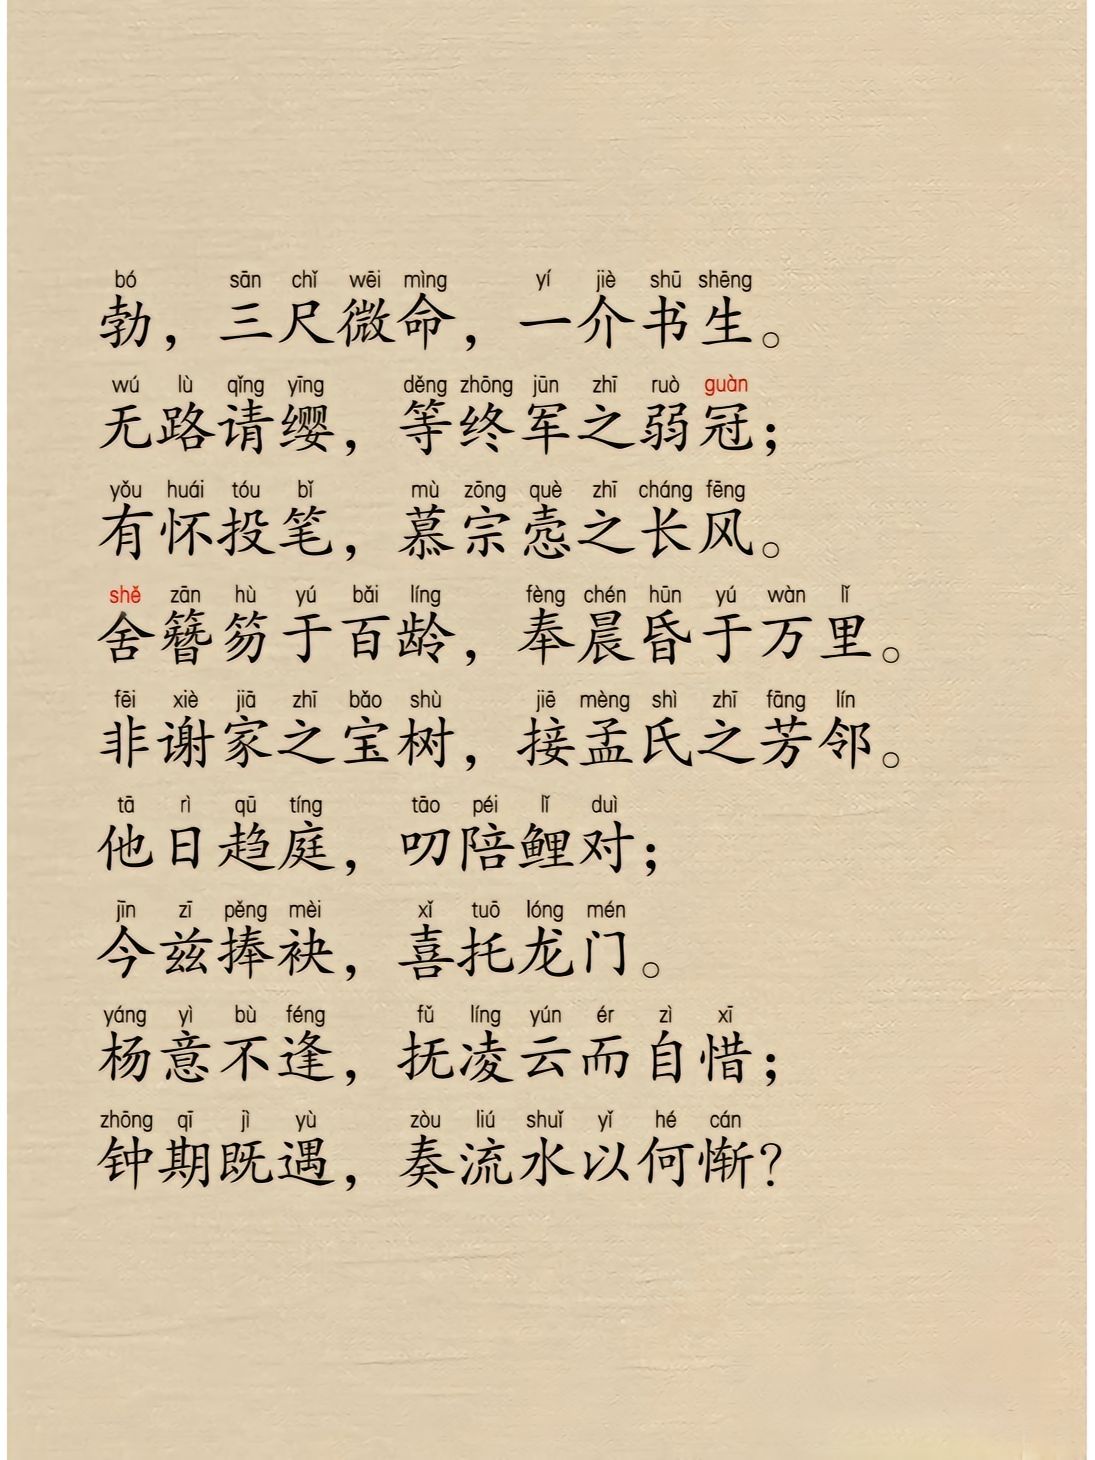 bó sān chǐ wēi mìng yí jiè shū shēng
勃，三尺微命，一介书生。
wú lù qǐng yīng děng zhōng jūn zhī ruò guàn
无路请缨，等终军之弱冠；
yǒu huái tóu bǐ mù zōng què zhī cháng fēng
有怀投笔，慕宗悫之长风。
shě zān hù yú bǎi líng fèng chén hūn yú wàn lǐ
舍簪笏于百龄，奉晨昏于万里。
fēi xiè jiā zhī bǎo shù jiē mèng shì zhī fāng lín
非谢家之宝树，接孟氏之芳邻。
tā rì qū tíng tāo péi lǐ duì
他日趋庭，叨陪鲤对；
jīn zī pěng mèi xǐ tuō lóng mén
今兹捧袂，喜托龙门。
yáng yì bù féng fǔ líng yún ér zì xī
杨意不逢，抚凌云而自惜；
zhōng qī jì yù zòu liú shuǐ yǐ hé cán
钟期既遇，奏流水以何惭？